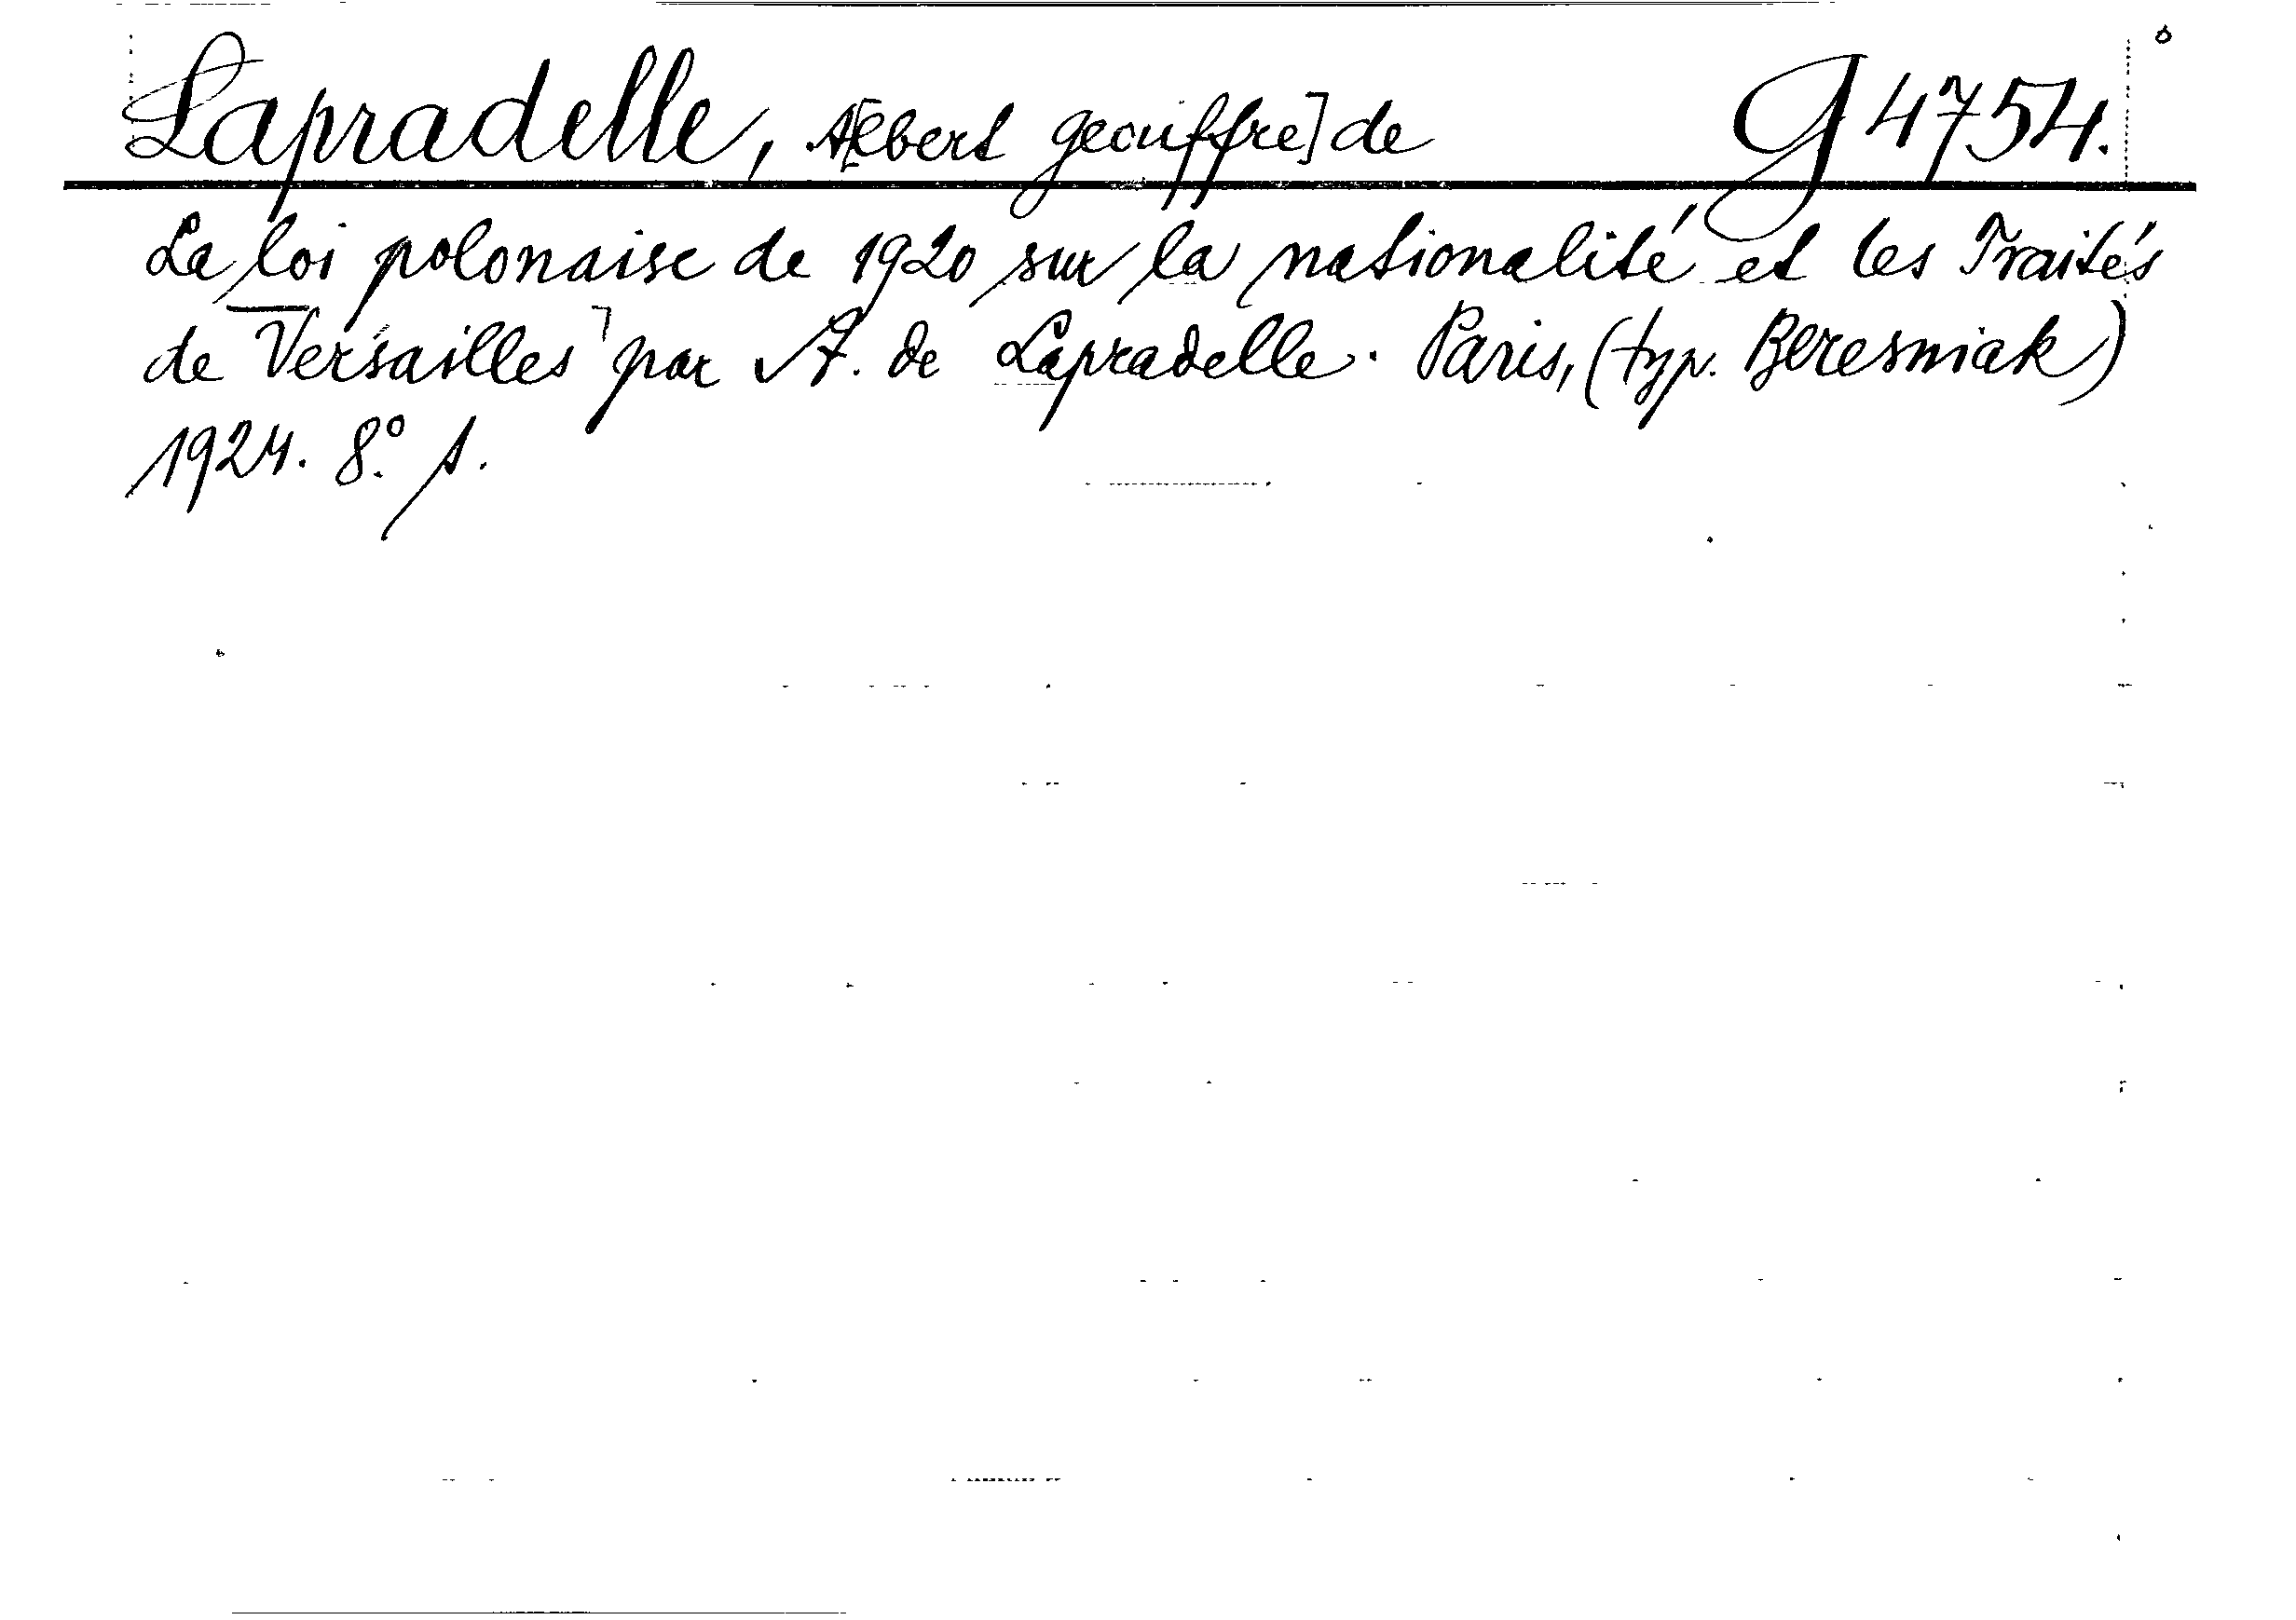 Lapradelle, A[lbert Geouffre] de G 4754.
La loi polonaise de 1920 sur la nationalité et les Traités
de Versailles par A. de Lapradelle. Paris, (typ. Beresniak)
1924. 8.° s.